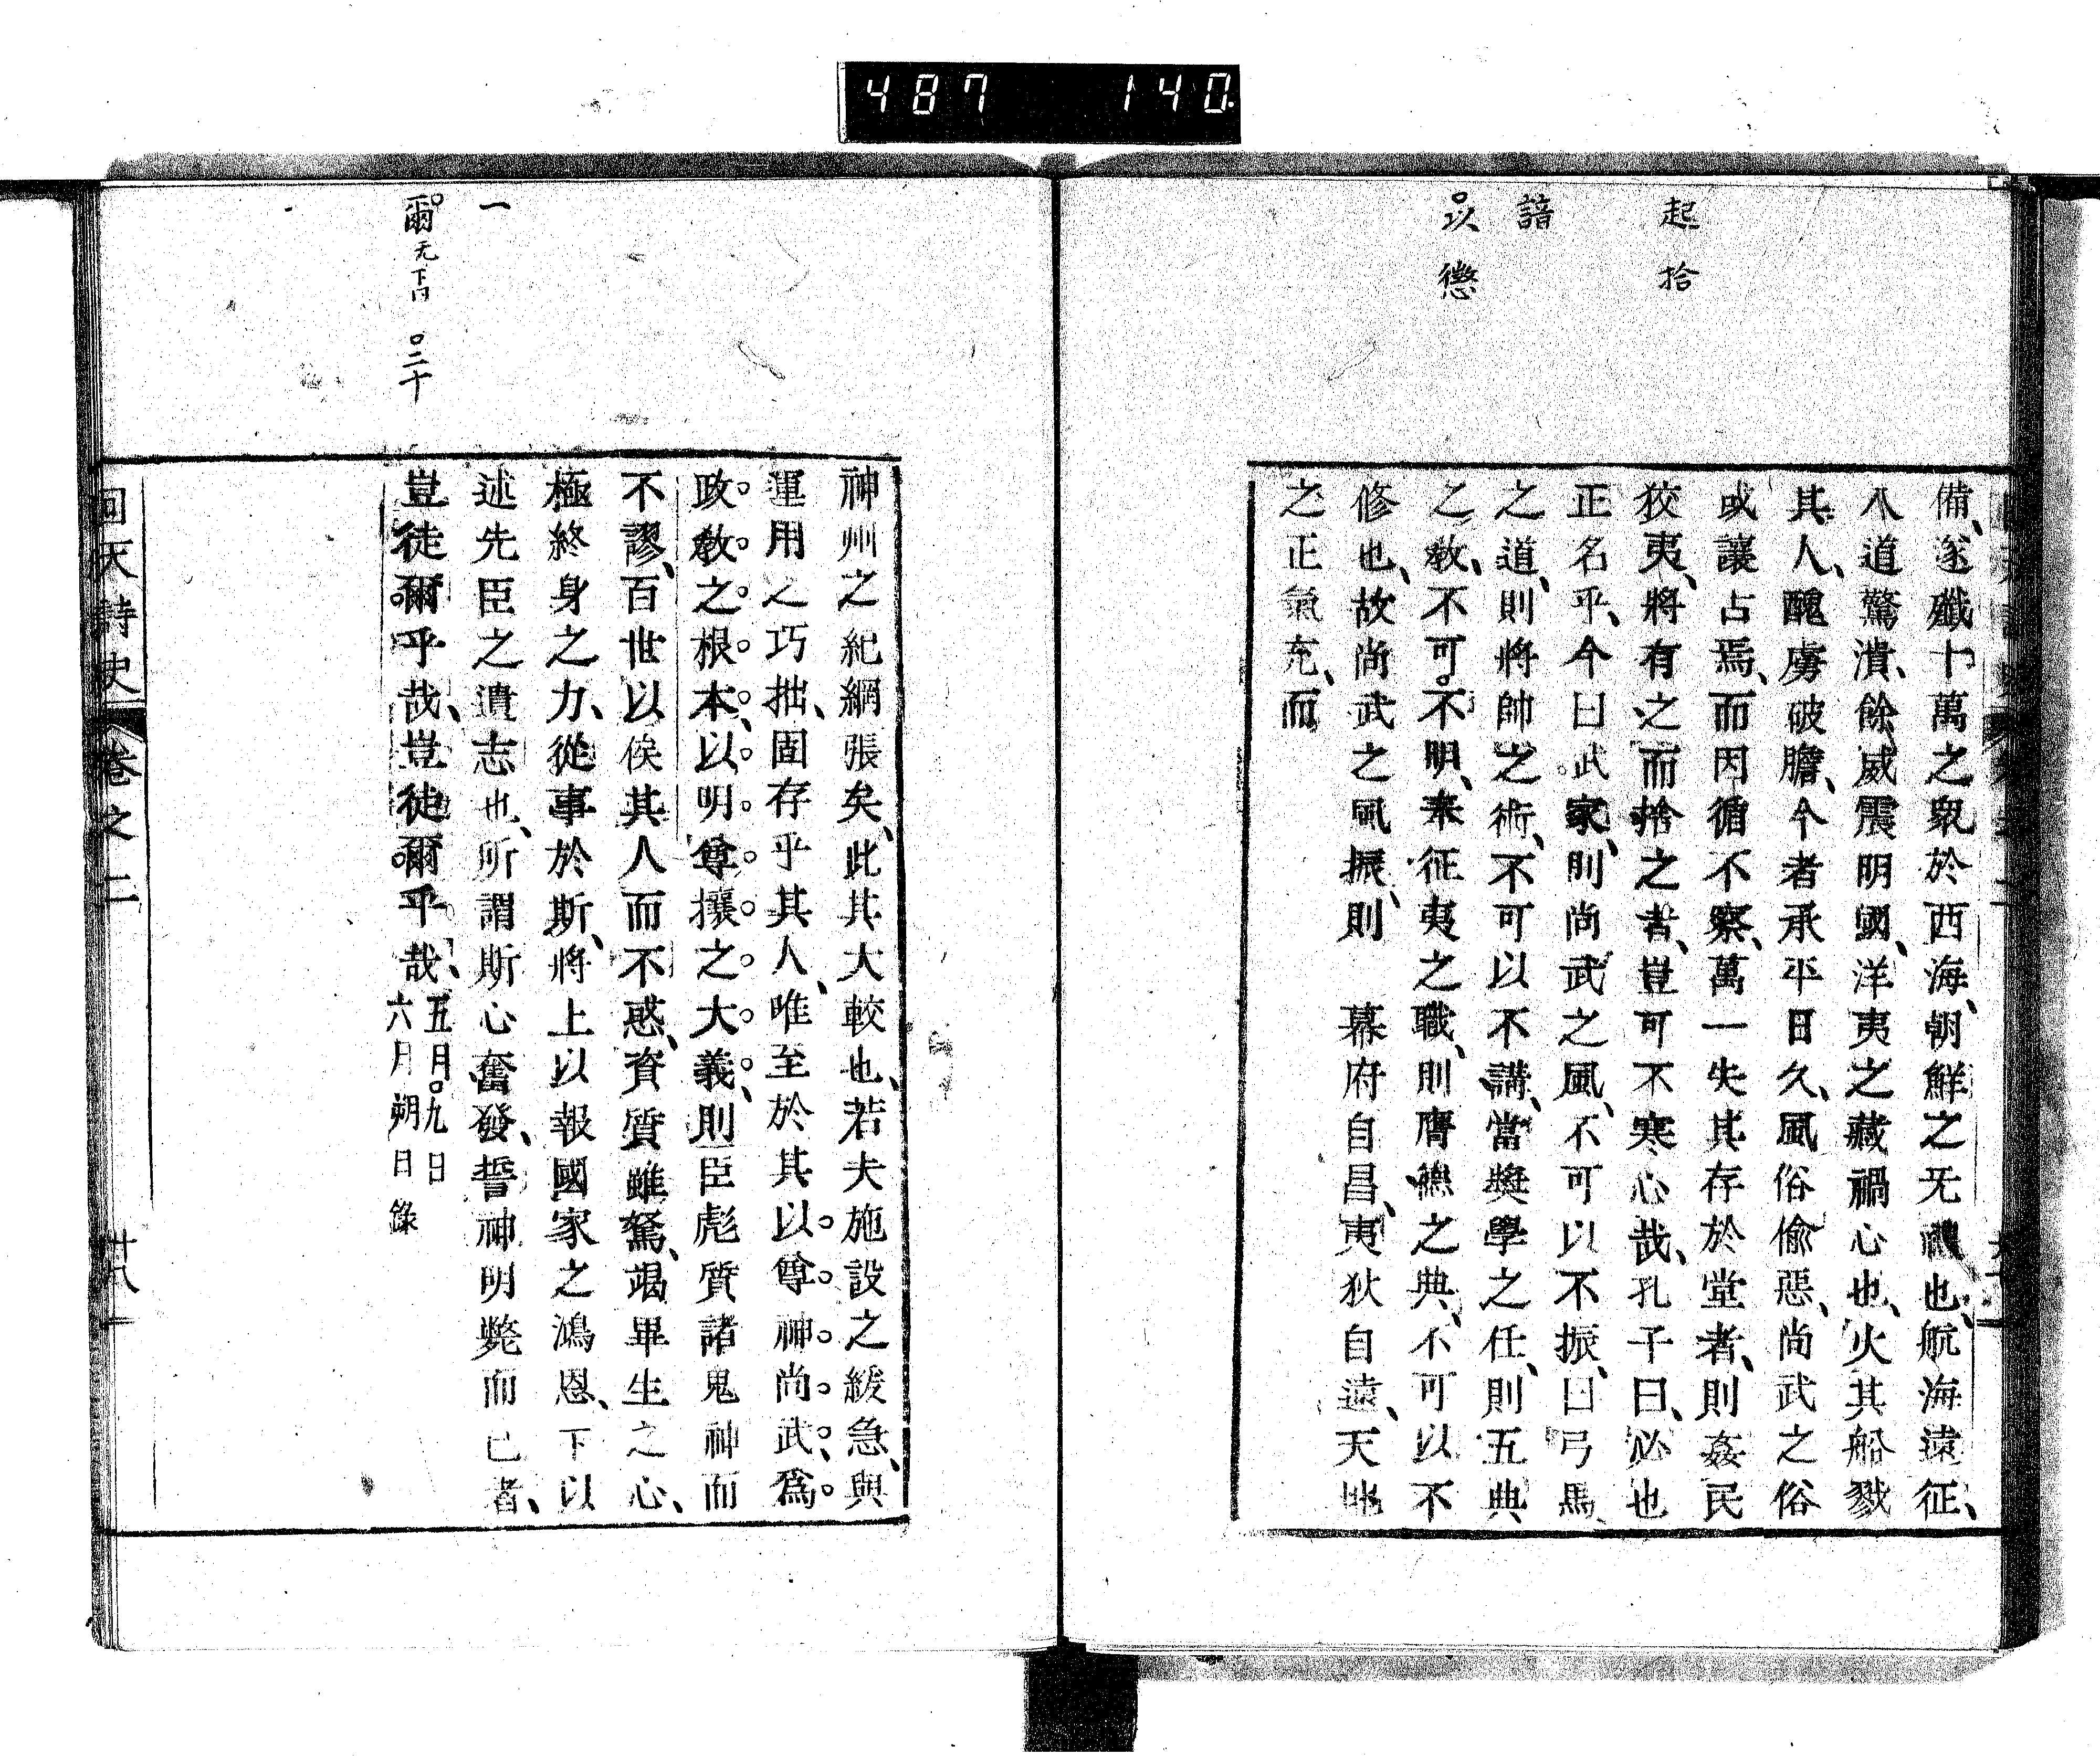 487 140
起 拾
諳
以 懲
備、遂殲十萬之衆於西海、朝鮮之无禮也、航海遠征、
八道驚潰、餘威震明國、洋夷之藏禍心也、火其船戮
其人、醜虜破膽、今者承平日久、風俗偸惡、尚武之俗
或讓占焉、而因循不察、萬一失其存於堂者、則姦民
狡夷、將有之而捨之者、豈可不寒心哉、孔子曰、必也
正名乎、今曰武家、則尚武之風、不可以不振、曰弓馬
之道、則將帥之術、不可以不講、當奬學之任、則五典
之敎、不可不明、奉征夷之職、則膺懲之典、不可以不
修也、故尚武之風振、則 幕府自昌、夷狄自遠、天地
之正氣充、而
神州之紀綱張矣、此其大較也、若夫施設之緩急、與
運用之巧拙、固存乎其人、唯至於其以尊神尚武、爲
政敎之根本、以明尊攘之大義、則臣彪質諸鬼神而
不謬、百世以俟其人而不惑、資質雖駑、竭畢生之心、
極終身之力、從事於斯、將上以報國家之鴻恩、下以
述先臣之遺志也、所謂斯心奮發、誓神明斃而已者、
豈徒爾乎哉、豈徒爾乎哉、五月九日
六月朔日錄
一
爾 无 下同 二十
回天詩史 卷之二 廿八